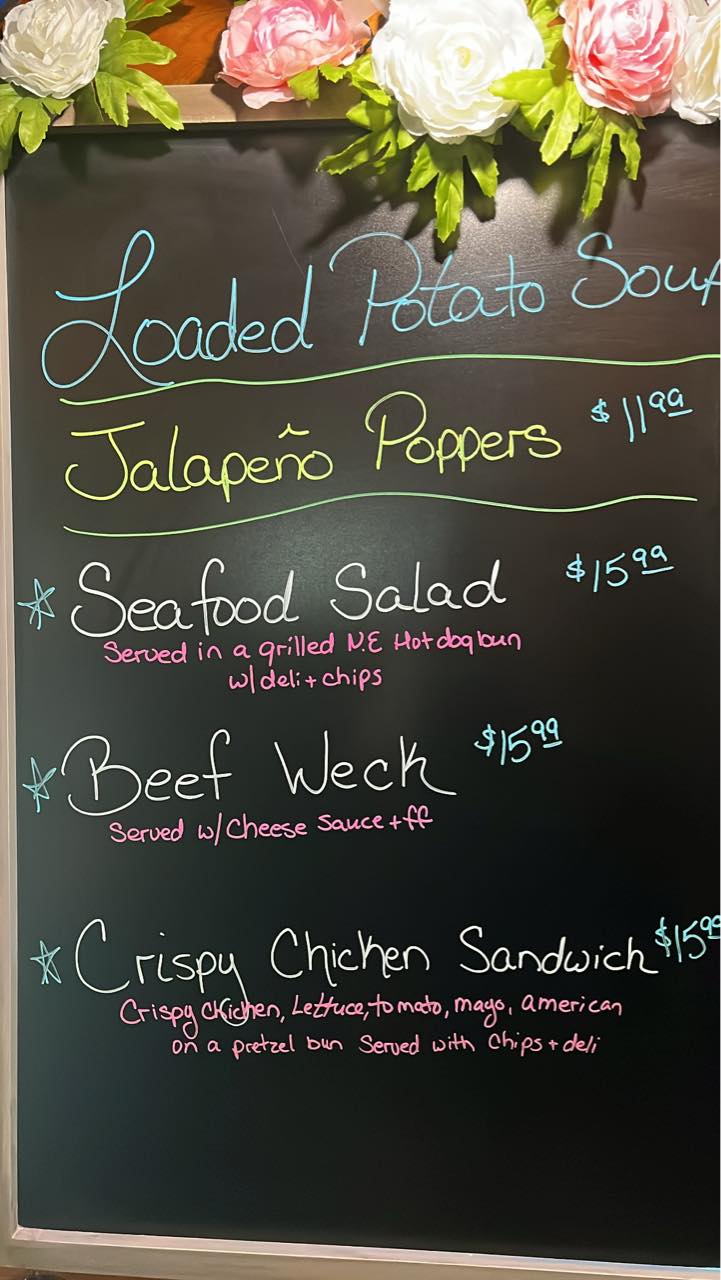 Loaded Potato Soup
Jalapeño Poppers $11.99
Seafood Salad $15.99
Served in a grilled N.E Hot dog bun
w/ deli + chips
Beef Weck $15.99
Served w/ Cheese Sauce + ff
Crispy Chicken Sandwich $15.99
Crispy Chicken, Lettuce, tomato, mayo, american
on a pretzel bun Served with Chips + deli